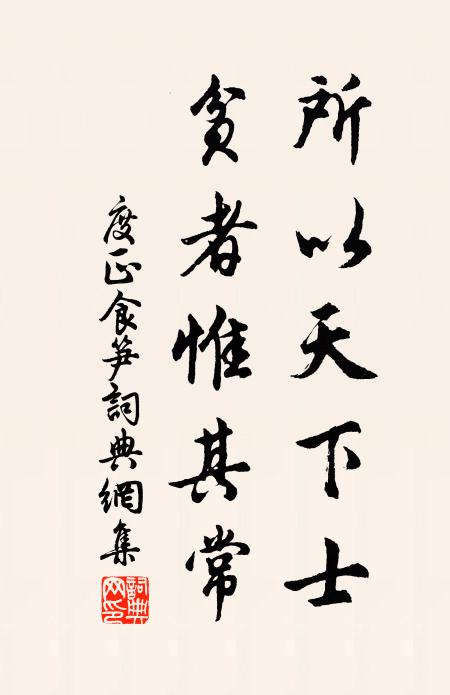 所以天下士
貧者惟其常
度正食笋詞典網集
詞典網印